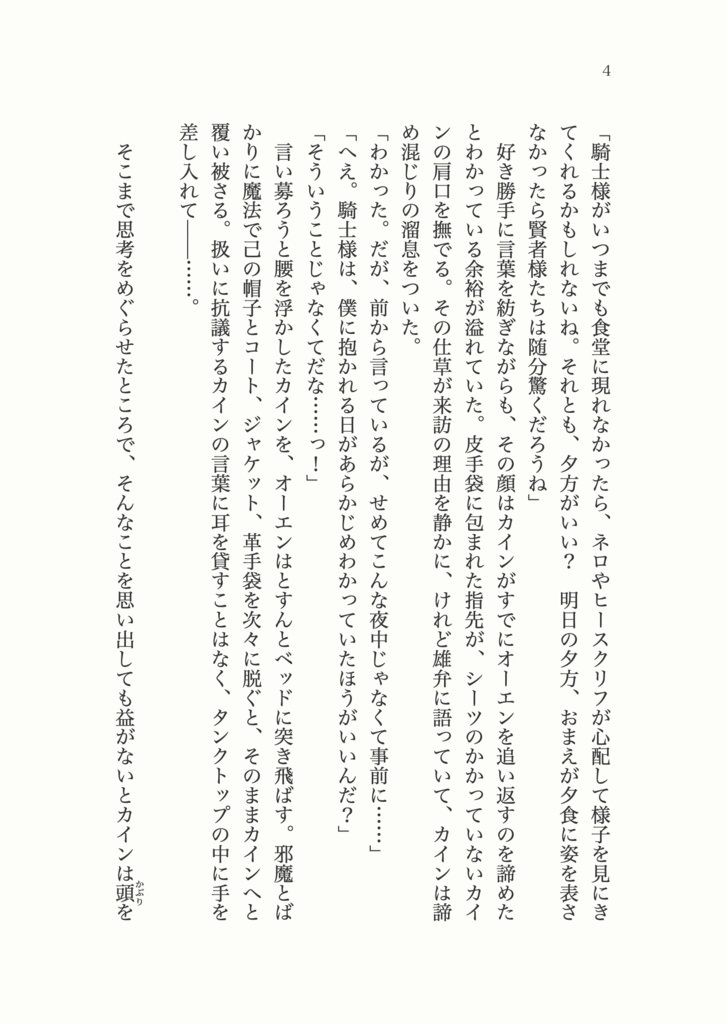 4
「騎士様がいつまでも食堂に現れなかったら、ネロやヒースクリフが心配して様子を見にき
てくれるかもしれないね。それとも、夕方がいい？　明日の夕方、おまえが夕食に姿を表さ
なかったら賢者様たちは随分驚くだろうね」
　好き勝手に言葉を紡ぎながらも、その顔はカインがすでにオーエンを追い返すのを諦めた
とわかっている余裕が溢れていた。皮手袋に包まれた指先が、シーツのかかっていないカイ
ンの肩口を撫でる。その仕草が来訪の理由を静かに、けれど雄弁に語っていて、カインは諦
め混じりの溜息をついた。
「わかった。だが、前から言っているが、せめてこんな夜中じゃなくて事前に……」
「へえ。騎士様は、僕に抱かれる日があらかじめわかっていたほうがいいんだ？」
「そういうことじゃなくてだな……っ！」
　言い募ろうと腰を浮かしたカインを、オーエンはとすんとベッドに突き飛ばす。邪魔とば
かりに魔法で己の帽子とコート、ジャケット、革手袋を次々に脱ぐと、そのままカインへと
覆い被さる。扱いに抗議するカインの言葉に耳を貸すことはなく、タンクトップの中に手を
差し入れて――……。
　そこまで思考をめぐらせたところで、そんなことを思い出しても益がないとカインは頭を
かぶり